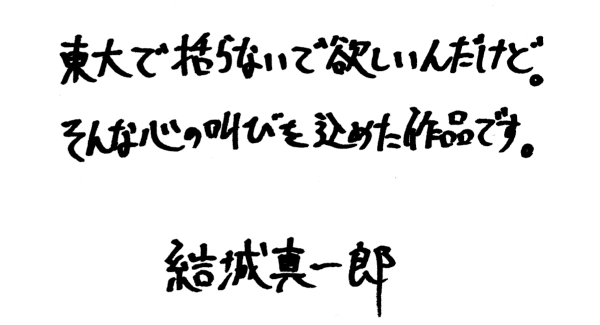 東大で括らないで欲しいんだけど。
そんな心の叫びを込めた作品です。
結城真一郎